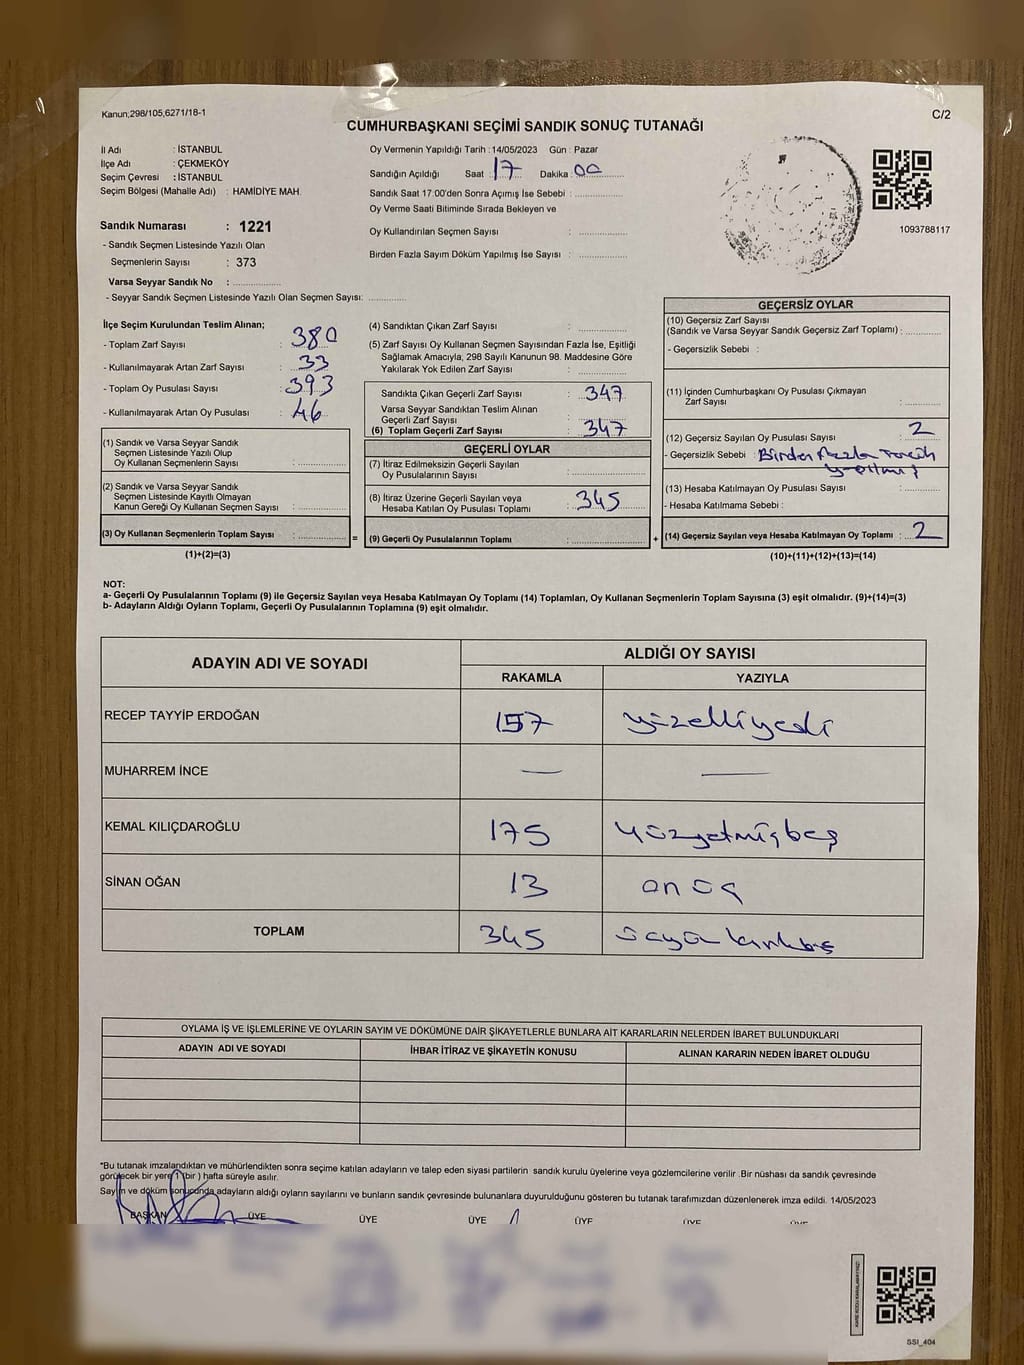 Kanun;298/105,6271/18-1
C/2
CUMHURBAŞKANI SEÇİMİ SANDIK SONUÇ TUTANAĞI
İl Adı : İSTANBUL
İlçe Adı : ÇEKMEKÖY
Seçim Çevresi : İSTANBUL
Seçim Bölgesi (Mahalle Adı) : HAMİDİYE MAH.
Sandık Numarası : 1221
- Sandık Seçmen Listesinde Yazılı Olan
Seçmenlerin Sayısı : 373
Varsa Seyyar Sandık No :
- Seyyar Sandık Seçmen Listesinde Yazılı Olan Seçmen Sayısı:
Oy Vermenin Yapıldığı Tarih :14/05/2023 Gün : Pazar
Sandığın Açıldığı Saat : 17 Dakika : 00
Sandık Saat 17:00'den Sonra Açımış İse Sebebi :
Oy Verme Saati Bitiminde Sırada Bekleyen ve
Oy Kullandırılan Seçmen Sayısı :
Birden Fazla Sayım Döküm Yapılmış İse Sayısı :
1093788117
İlçe Seçim Kurulundan Teslim Alınan;
- Toplam Zarf Sayısı : 380
- Kullanılmayarak Artan Zarf Sayısı : 33
- Toplam Oy Pusulası Sayısı : 393
- Kullanılmayarak Artan Oy Pusulası : 46
(1) Sandık ve Varsa Seyyar Sandık
Seçmen Listesinde Yazılı Olup
Oy Kullanan Seçmenlerin Sayısı :
(2) Sandık ve Varsa Seyyar Sandık
Seçmen Listesinde Kayıtlı Olmayan
Kanun Gereği Oy Kullanan Seçmen Sayısı :
(3) Oy Kullanan Seçmenlerin Toplam Sayısı : =
(1)+(2)=(3)
(4) Sandıktan Çıkan Zarf Sayısı :
(5) Zarf Sayısı Oy Kullanan Seçmen Sayısından Fazla İse, Eşitliği
Sağlamak Amacıyla, 298 Sayılı Kanunun 98. Maddesine Göre
Yakılarak Yok Edilen Zarf Sayısı :
Sandıkta Çıkan Geçerli Zarf Sayısı : 347
Varsa Seyyar Sandıktan Teslim Alınan
Geçerli Zarf Sayısı :
(6) Toplam Geçerli Zarf Sayısı : 347
GEÇERLİ OYLAR
(7) İtiraz Edilmeksizin Geçerli Sayılan
Oy Pusulalarının Sayısı :
(8) İtiraz Üzerine Geçerli Sayılan veya
Hesaba Katılan Oy Pusulası Toplamı : 345
(9) Geçerli Oy Pusulalarının Toplamı : +
GEÇERSİZ OYLAR
(10) Geçersiz Zarf Sayısı
(Sandık ve Varsa Seyyar Sandık Geçersiz Zarf Toplamı) :
- Geçersizlik Sebebi :
(11) İçinden Cumhurbaşkanı Oy Pusulası Çıkmayan
Zarf Sayısı :
(12) Geçersiz Sayılan Oy Pusulası Sayısı : 2
- Geçersizlik Sebebi : Birden fazla tercih
yapılmış
(13) Hesaba Katılmayan Oy Pusulası Sayısı :
- Hesaba Katılmama Sebebi :
(14) Geçersiz Sayılan veya Hesaba Katılmayan Oy Toplamı : 2
(10)+(11)+(12)+(13)=(14)
NOT:
a- Geçerli Oy Pusulalarının Toplamı (9) ile Geçersiz Sayılan veya Hesaba Katılmayan Oy Toplamı (14) Toplamları, Oy Kullanan Seçmenlerin Toplam Sayısına (3) eşit olmalıdır. (9)+(14)=(3)
b- Adayların Aldığı Oyların Toplamı, Geçerli Oy Pusulalarının Toplamına (9) eşit olmalıdır.
ADAYIN ADI VE SOYADI
ALDIĞI OY SAYISI
RAKAMLA YAZIYLA
RECEP TAYYİP ERDOĞAN 157 yüzelliyedi
MUHARREM İNCE — —
KEMAL KILIÇDAROĞLU 175 yüzyetmişbeş
SİNAN OĞAN 13 onüç
TOPLAM 345 üçyüzkırkbeş
OYLAMA İŞ VE İŞLEMLERİNE VE OYLARIN SAYIM VE DÖKÜMÜNE DAİR ŞİKAYETLERLE BUNLARA AİT KARARLARIN NELERDEN İBARET BULUNDUKLARI
ADAYIN ADI VE SOYADI İHBAR İTİRAZ VE ŞİKAYETİN KONUSU ALINAN KARARIN NEDEN İBARET OLDUĞU
*Bu tutanak imzalandıktan ve mühürlendikten sonra seçime katılan adayların ve talep eden siyasi partilerin sandık kurulu üyelerine veya gözlemcilerine verilir .Bir nüshası da sandık çevresinde
görülecek bir yere 1 (bir ) hafta süreyle asılır.
Sayım ve döküm sonucunda adayların aldığı oyların sayılarını ve bunların sandık çevresinde bulunanlara duyurulduğunu gösteren bu tutanak tarafımızdan düzenlenerek imza edildi. 14/05/2023
BAŞKAN ÜYE ÜYE ÜYE ÜYE ÜYE ÜYE
SSI_404